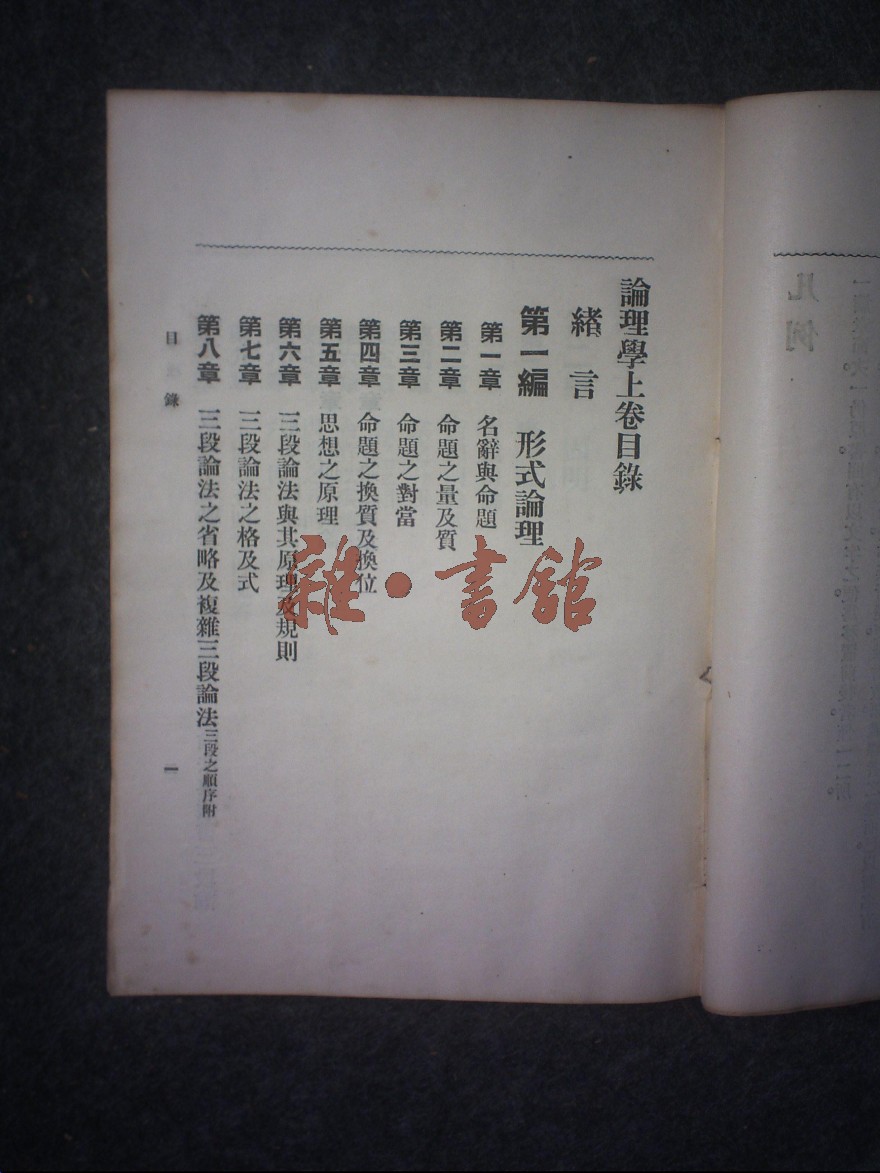 論理學上卷目錄
緒言
第一編 形式論理
第一章 名辭與命題
第二章 命題之量及質
第三章 命題之對當
第四章 命題之換質及換位
第五章 思想之原理
第六章 三段論法與其原理及規則
第七章 三段論法之格及式
第八章 三段論法之省略及複雜三段論法三段之順序附
目錄 一
雜·書館
凡例